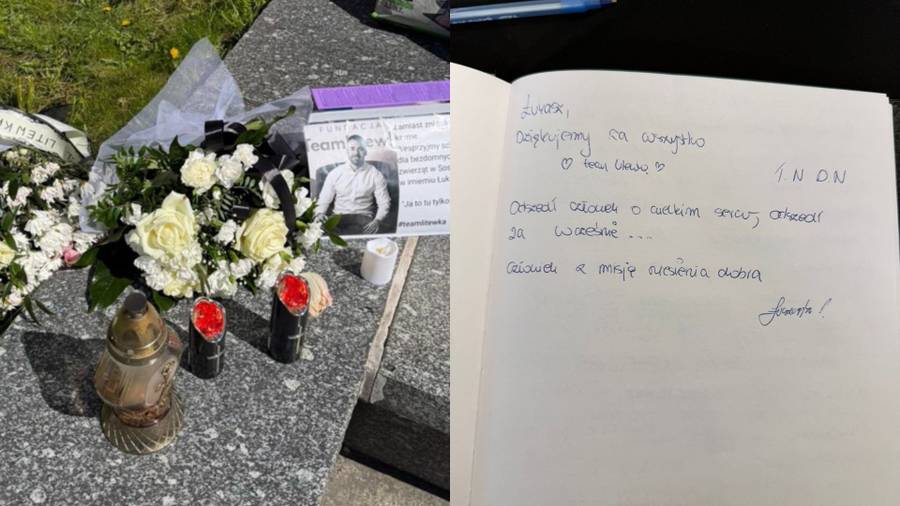 LITEWK
FUNDACJA
Team Litewk
zamiast zni
dla bezdomnyc
zwierząt w Sos
w imieniu Łuk
"Ja to tu tylko
#teamlitewka
Łukasz,
Dziękujemy za wszystko
♡ team litewka ♡
T.N D.N
Odszedł człowiek o wielkim sercu, odszedł
za wcześnie ...
człowiek z misją niesienia dobra